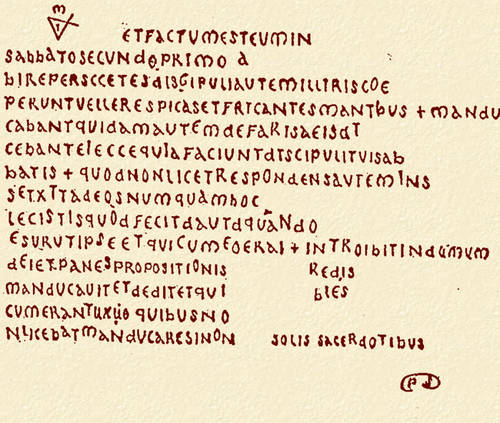 ETFACTUMESTEUMIN
SABBATOSECUNDOPRIMO A
BIREPERSCCETESDISGIPULIAUTEMILLTRISCOE
PERUNTVELLERESPICASETFRICANTESMANTBUS + MANDU
CABANTQUIDAMAUTEMDEFARISAEISDT
CEBANTEIECCEQUIAFACIUNTDTSCIPULITUISAB
BATIS + QUODNONLICETRESPONDENSAUTEMINS
SETXTTADEOSNUMQUAMBOC
LECISTISQUODFECITDAUTDQUANDO
ESURUTIPSEETQUICUMEOERAI + INTROIBITINDUMUM
DEIETPANESPROPOSITIONIS REDIS
MANDUCAUITETDEDITETQUI BLES
CUMERANTUXUO QUIBUSNO
NLICEBATMANDUCARESINON SOLIS SACERDOTIBUS
PS